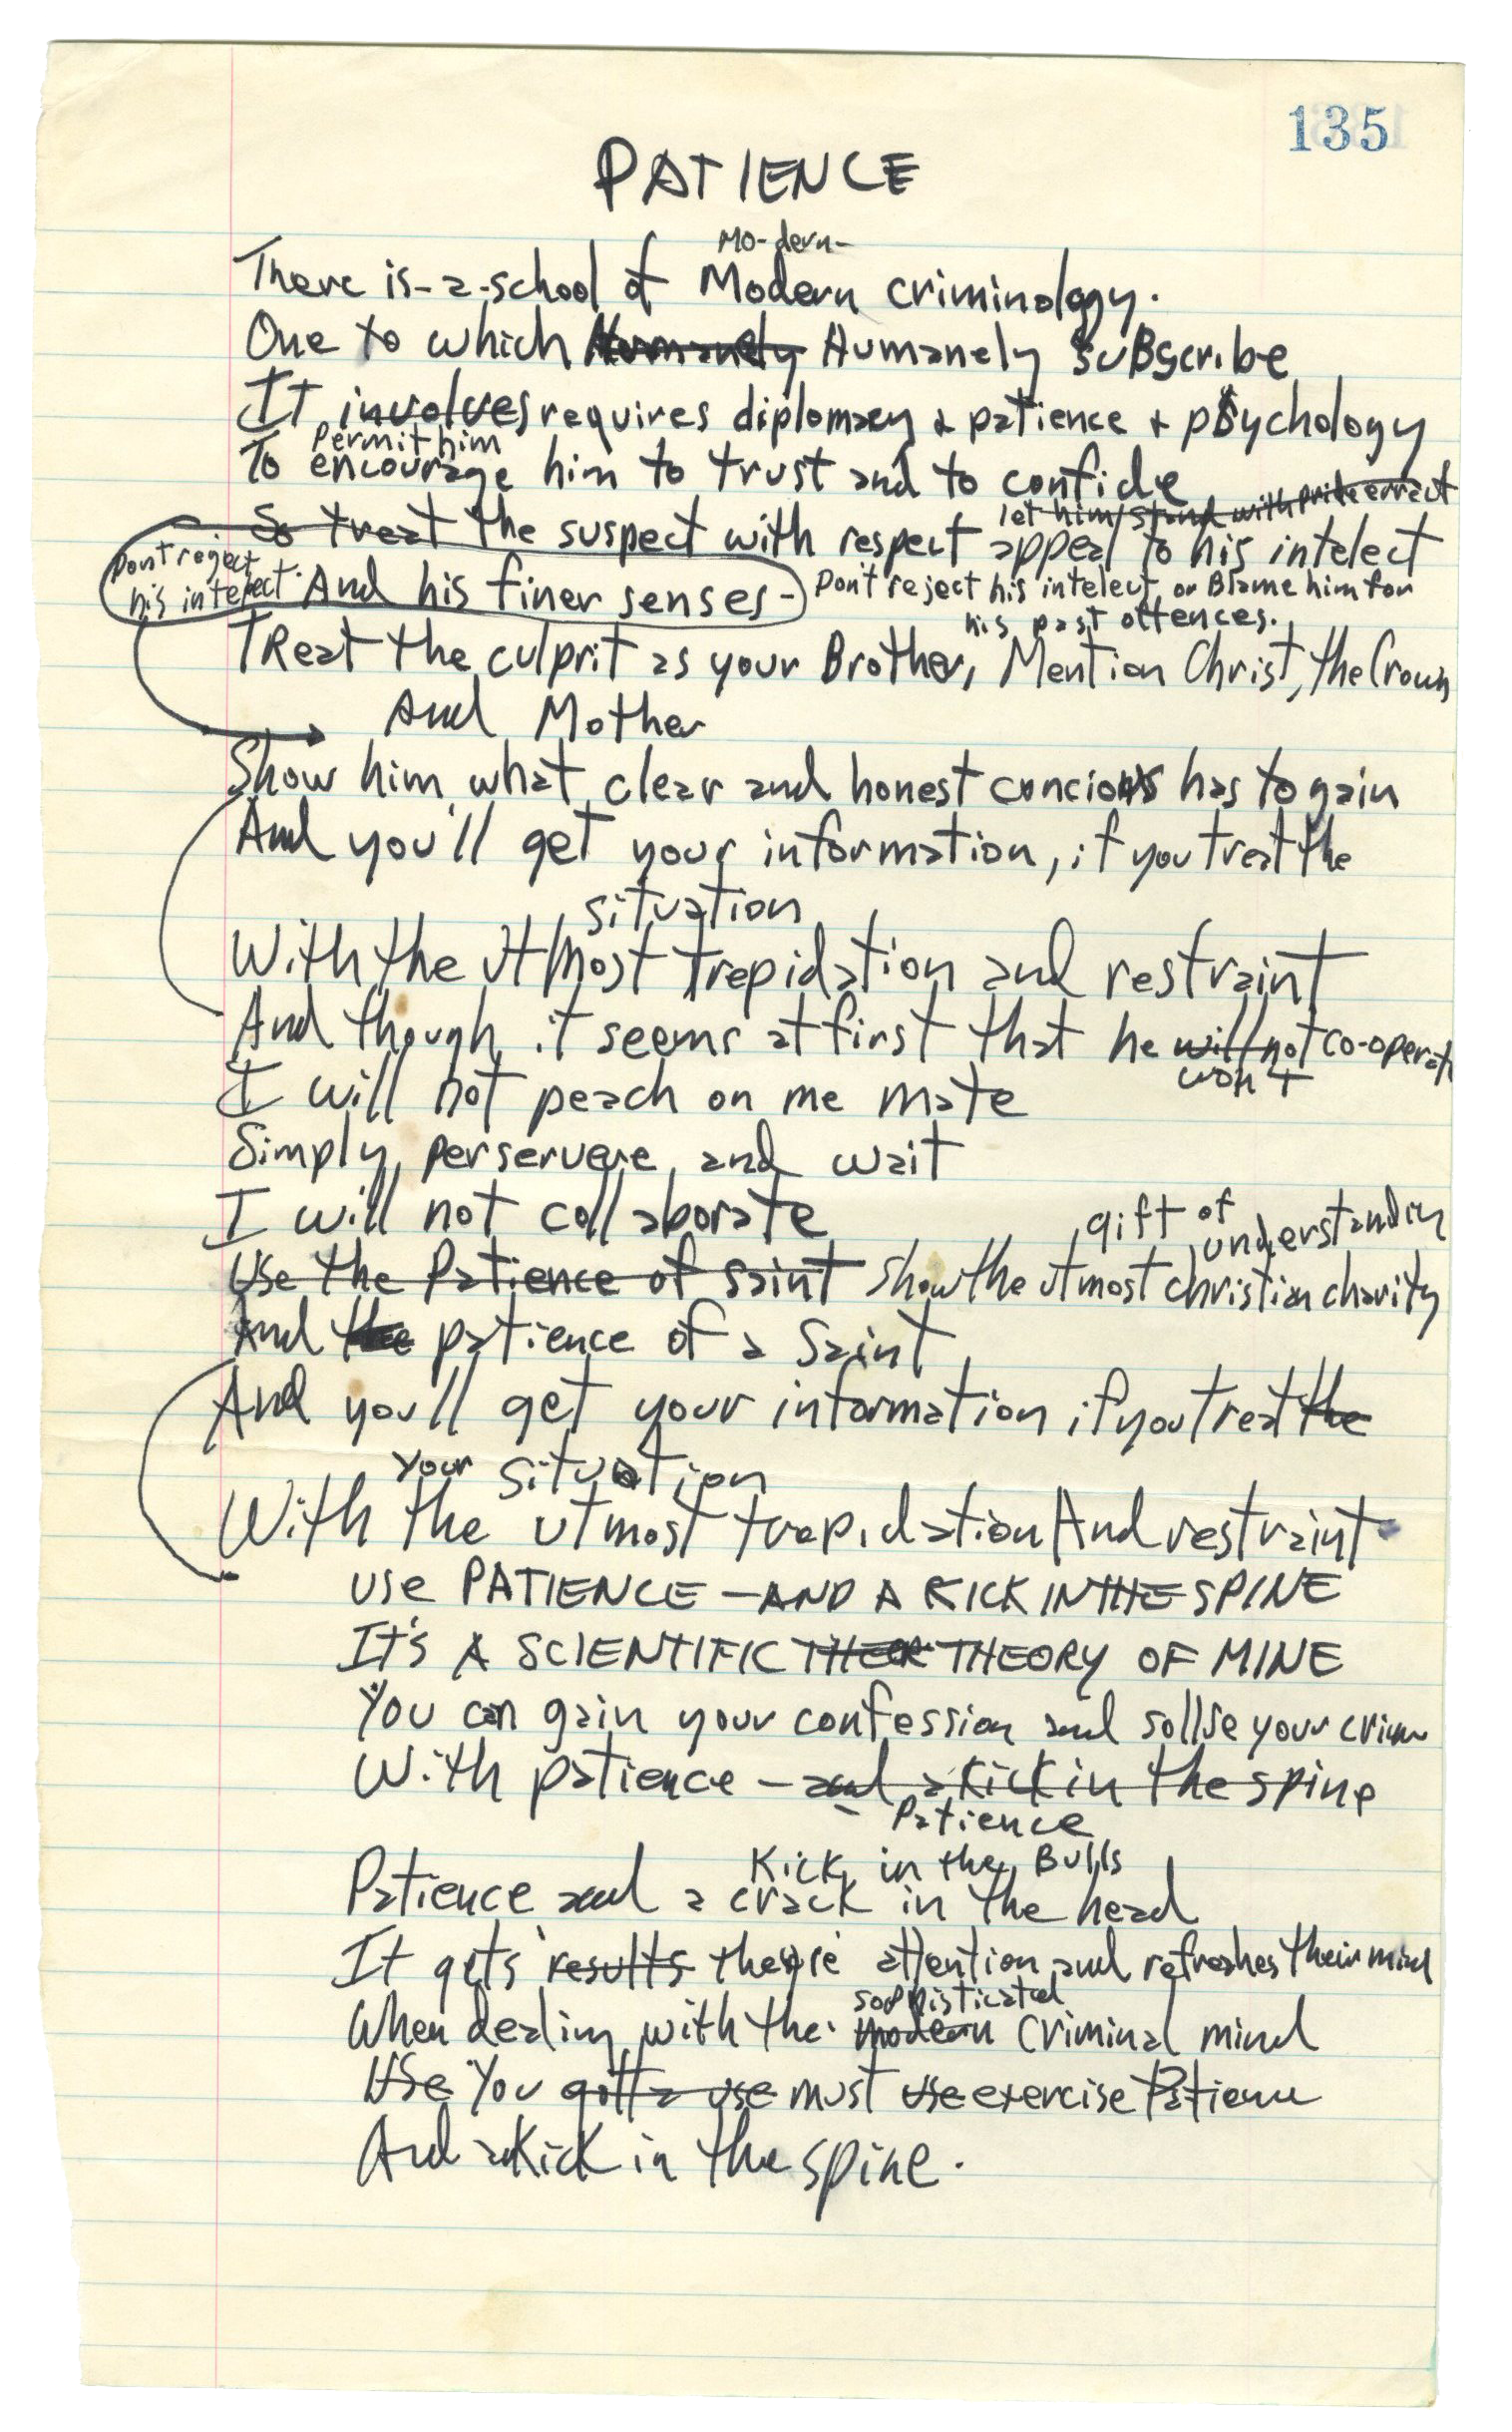 135
PATIENCE
Mo-dern-
There is-a-school of Modern criminology.
One to which Humanely Humanely subscribe
It involves requires diplomacy + patience + psychology
Permit him
To encourage him to trust and to confide
let him stand with pride erract
So treat the suspect with respect appeal to his intelect
Dont reject
his intelect. And his finer senses- Don't reject his intelect, or Blame him for
his past offences.
TReat the culprit as your Brother, Mention Christ, the Crown
And Mother
Show him what clear and honest concious has to gain
And you'll get your information, if you treat the
situation
With the utmost trepidation and restraint
And though it seems at first that he will not co-operate
won't
I will not peach on me mate
Simply perservere and wait
I will not collaborate
gift of
understanding
Use the Patience of saint Show the utmost christian charity
And the patience of a Saint
And you'll get your information if you treat the
your situation
With the utmost trepidation And restraint
USE PATIENCE - AND A KICK IN THE SPINE
IT'S A SCIENTIFIC THEOR THEORY OF MINE
You can gain your confession and sollve your crime
With patience - and a kick in the spine
- Patience
Kick in the Bulls
Patience and a crack in the head
It gets results attention and refreshes their mind
sophisticated
When dealing with the modern criminal mind
Use You gotta use must use exercise Patience
And a Kick in the spine.